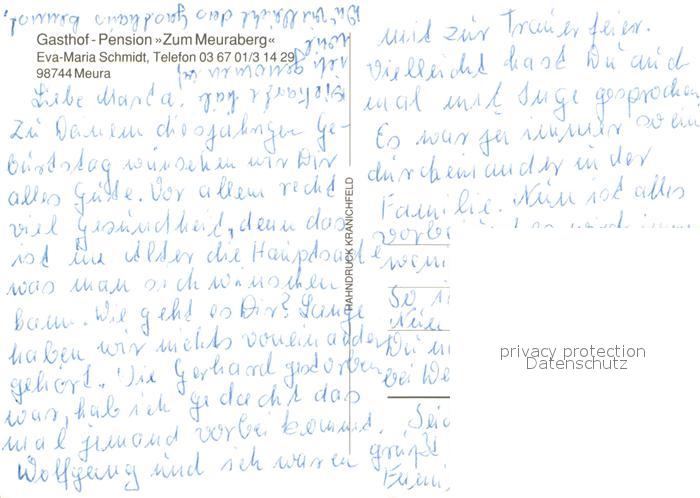 Gasthof-Pension »Zum Meuraberg«
Eva-Maria Schmidt, Telefon 03 67 01/3 14 29
98744 Meura
Liebe Marta.
Zu Deinem diesjährigen Ge-
burtstag wünschen wir Dir
alles Gute. Vor allem recht
viel Gesundheit, denn das
ist im Alter die Hauptsache
was man sich wünschen
kann. Wie geht es Dir? Lange
haben wir nichts voneinander
gehört. Wie Gerhard gestorben
war, hab ich gedacht das
mal jemand vorbei kommt.
Wolfgang und ich waren
HAHNDRUCK KRANICHFELD
mit zur Trauerfeier.
Vielleicht hast Du auch
mal mit Inge gesprochen
Es war ja immer so ein
durcheinander in der
Familie. Nun ist alles
So
Nun
Du
bei
grüßt
privacy protection
Datenschutz